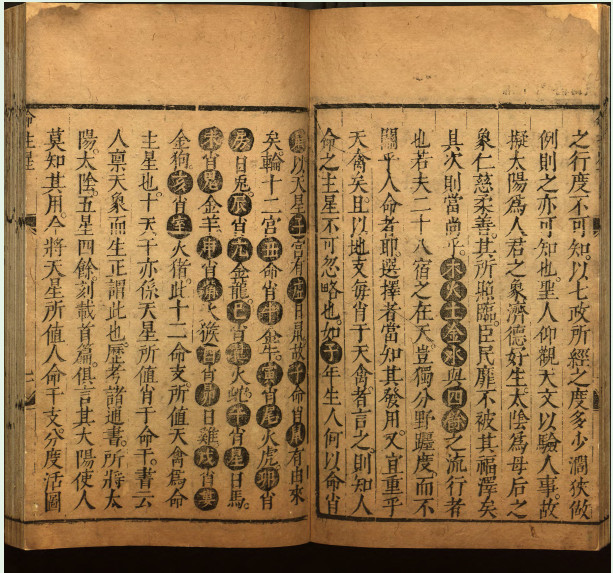 之行度不可知。以七政所經之度多少濶狹做
例則之亦可知也聖人仰觀天文以驗人事。故
擬太陽為人君之象濟德好生太陰為母后之
象仁慈柔善。其所照臨。臣民靡不被其福澤矣
其次則當尚乎。木火土金水與四餘之流行者
也若夫二十八宿之在天豈獨分野躔度。而不
關乎人命者耶。選擇者當知其發用。又宜重乎
天禽矣。且以地支每肖于天禽。者言之。則知人
命之主星不可忽略也。如子年生人何以命肖
鼠以天星子宮有虛日鼠。故子命肖鼠有由來
矣輪十二宮丑命肖牛金牛。寅肖尾火虎卯肖
房日兎。辰肖亢金龍。巳肖翼火蛇午肖星日馬。
未肖鬼金羊。申肖觜火猴酉肖昴日雞戌肖婁
金狗亥肖室火猪。此十二命支。所值天禽為命
主星也。十天干亦係天星所值肖于命干。書云
人禀天象而生正謂此也。歷考諸通書。所將太
陽太陰。五星四餘。刻載首篇。俱言其太陽使人
莫知其用。今將天星所值人命干支。分度活圖
命主星